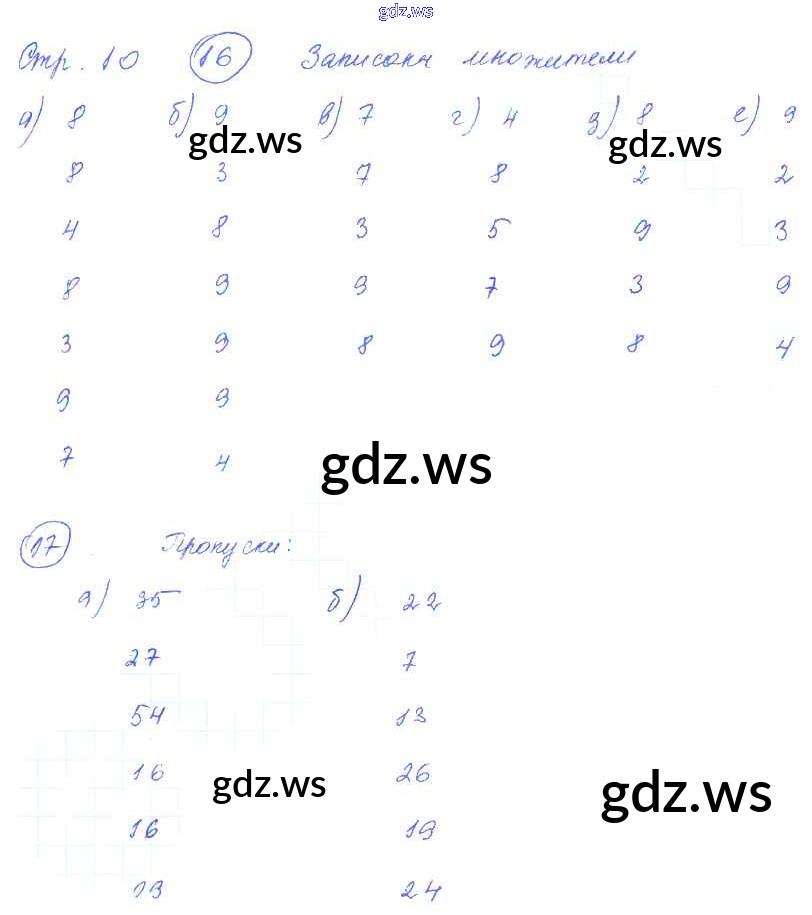 gdz.ws
Стр. 10 16 Записаны множители
а) 8 б) 9 в) 7 г) 4 д) 8 е) 9
gdz.ws gdz.ws
8 3 7 8 2 2
4 8 3 5 9 3
8 9 9 7 3 9
3 9 8 9 8 4
9 9
7 4
gdz.ws
17 Пропуски:
а) 35 б) 22
27 7
54 13
16 26
gdz.ws gdz.ws
16 19
13 24